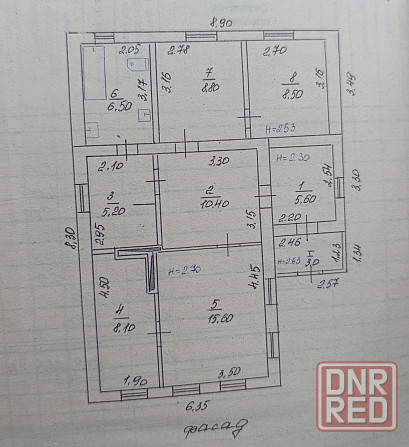 8.90
2.05
2.78
2.70
6
6.50
3.17
3.16
7
8.80
8
8.50
3.16
3.49
H=2.53
2.10
3.30
H=2.30
3
5.20
2
10.40
1
5.60
2.54
3.30
8.30
2.95
3.15
2.20
2.46
H=2.63
I
3,0
1.23
1.34
4.50
H=2.70
4.45
2.57
4
8.10
5
15.60
1.90
3.50
6.35
фасад
DNR
RED